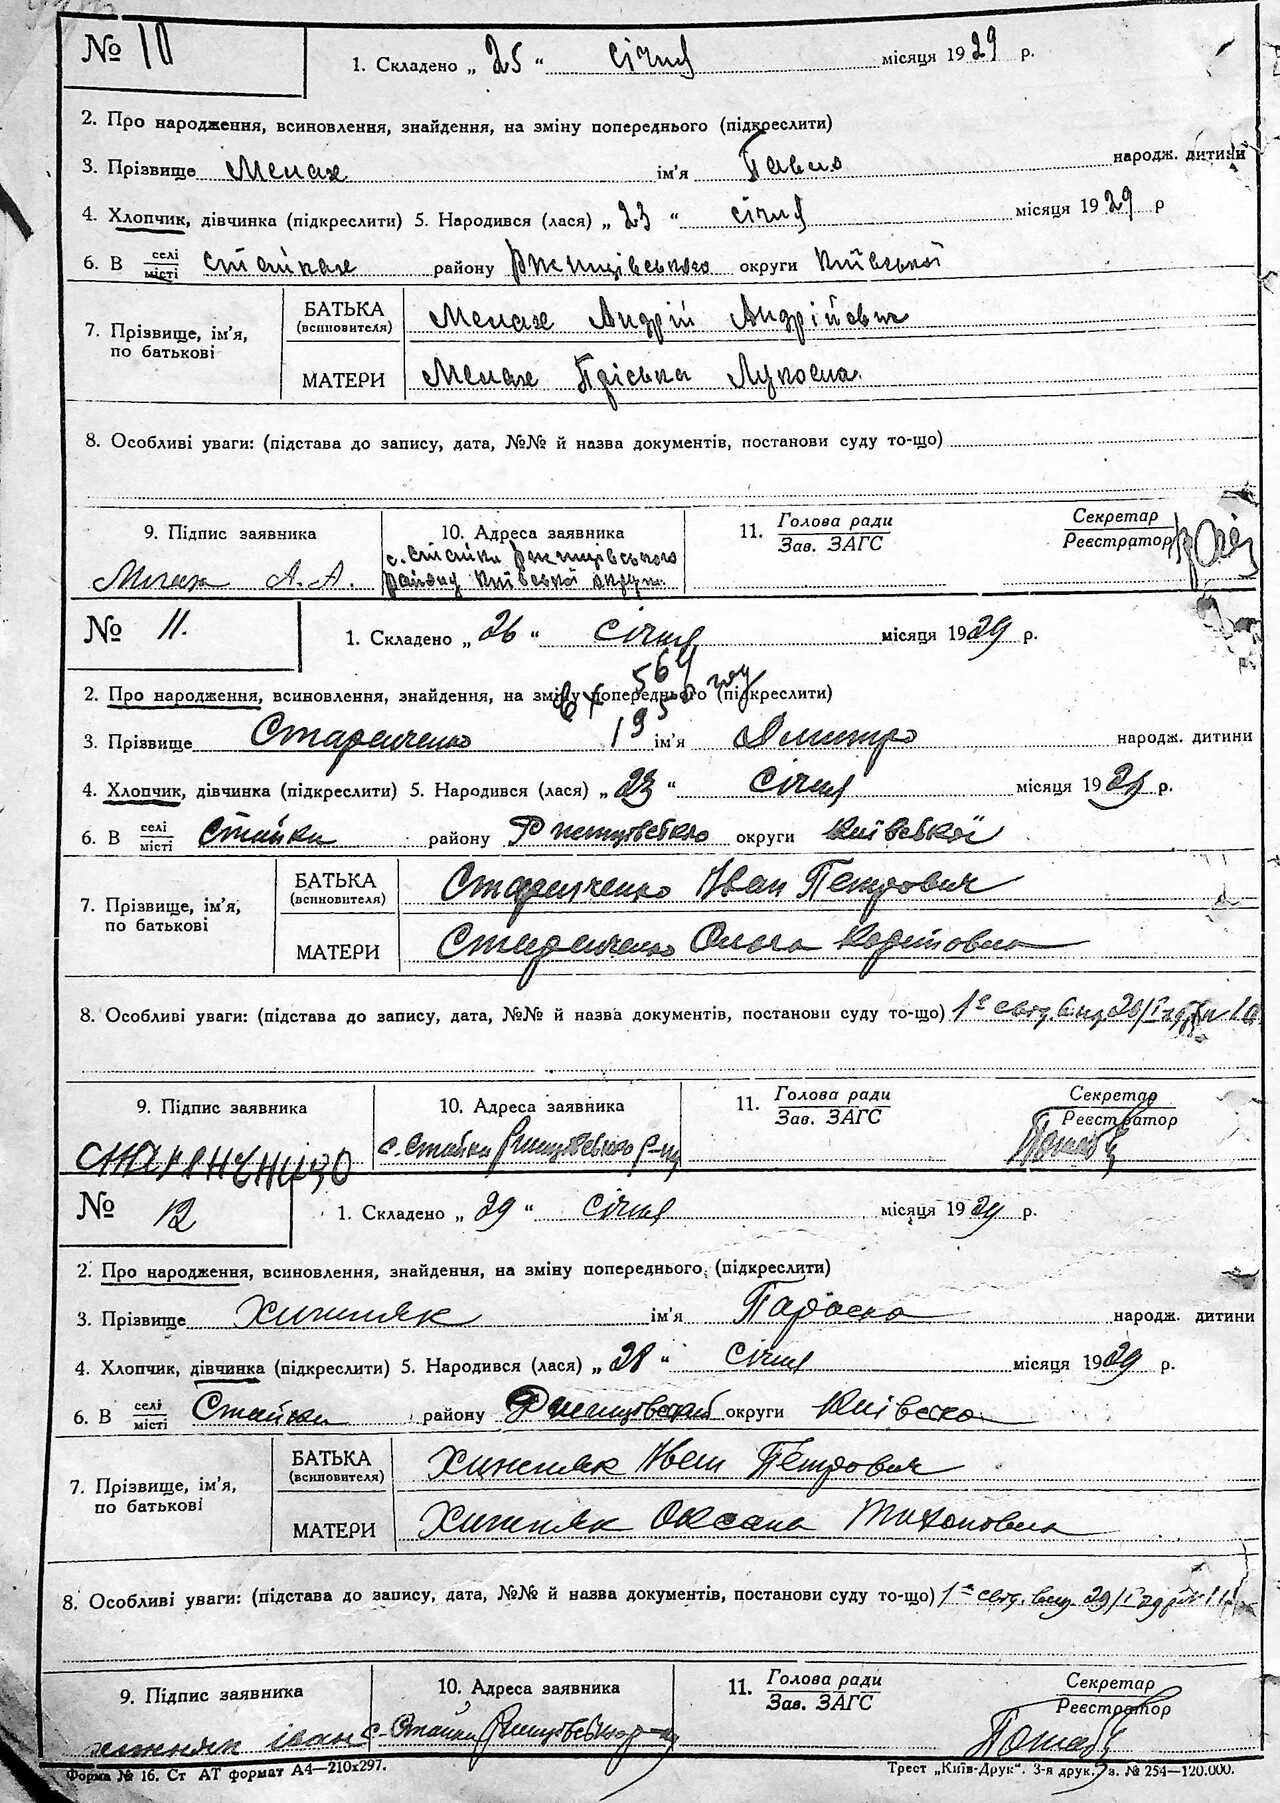 № 10
1. Складено „ 25 “ січня місяця 1929 р.
2. Про народження, всиновлення, знайдення, на зміну попереднього (підкреслити)
3. Прізвище Мелах ім'я Павло народж. дитини
4. Хлопчик, дівчинка (підкреслити) 5. Народився (лася) „ 23 “ січня місяця 1929 р
6. В селі місті Стайках району Ржищівського округи Київської
7. Прізвище, ім'я, по батькові
БАТЬКА (всиновителя) Мелах Андрій Андрійович
МАТЕРИ Мелах Пріська Луковна
8. Особливі уваги: (підстава до запису, дата, №№ й назва документів, постанови суду то-що)
9. Підпис заявника 10. Адреса заявника 11. Голова ради Зав. ЗАГС Секретар Реєстратор
с. Стайки Ржищівського
Мелах А. А. району Київської округи
№ 11.
1. Складено „ 26 “ січня місяця 1929 р.
564
2. Про народження, всиновлення, знайдення, на зміну попереднього (підкреслити)
3. Прізвище Старенченко ім'я Дмитро народж. дитини
4. Хлопчик, дівчинка (підкреслити) 5. Народився (лася) „ 23 “ січня місяця 1929 р.
6. В селі місті Стайки району Ржищівського округи Київської
7. Прізвище, ім'я, по батькові
БАТЬКА (всиновителя) Старенченко Иван Петрович
МАТЕРИ Старенченко Ольга
8. Особливі уваги: (підстава до запису, дата, №№ й назва документів, постанови суду то-що)
9. Підпис заявника 10. Адреса заявника 11. Голова ради Зав. ЗАГС Секретар Реєстратор
с. Стайки Ржищівського р-ну
№ 12
1. Складено „ 29 “ січня місяця 1929 р.
2. Про народження, всиновлення, знайдення, на зміну попереднього, (підкреслити)
3. Прізвище Хижняк ім'я Параска народж. дитини
4. Хлопчик, дівчинка (підкреслити) 5. Народився (лася) „ 28 “ січня місяця 1929 р.
6. В селі місті Стайки району округи
7. Прізвище, ім'я, по батькові
БАТЬКА (всиновителя) Хижняк Иван Петрович
МАТЕРИ Хижняк Оксана Тихоновна
8. Особливі уваги: (підстава до запису, дата, №№ й назва документів, постанови суду то-що)
9. Підпис заявника 10. Адреса заявника 11. Голова ради Зав. ЗАГС Секретар Реєстратор
хижняк іван с. Стайки
Форма № 16. Ст АТ формат А4—210х297. Трест „Київ-Друк“. 3-я друк. З. № 254—120.000.